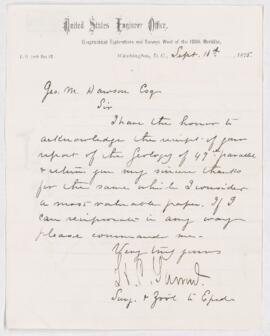 United States Engineer Office,
Geographical Explorations and Surveys West of the 100th Meridian,
Washington, D.C., Sept. 11th 1875
Geo. M. Dawson Esq.
Sir
I have the honor to
acknowledge the receipt of your
report of the Geology of 49th parallel
& return you my sincere thanks
for the same which I consider
a most valuable paper. If I
can reciprocate in any way
please command me.
Very truly yours
Surg. & Zool to Exped